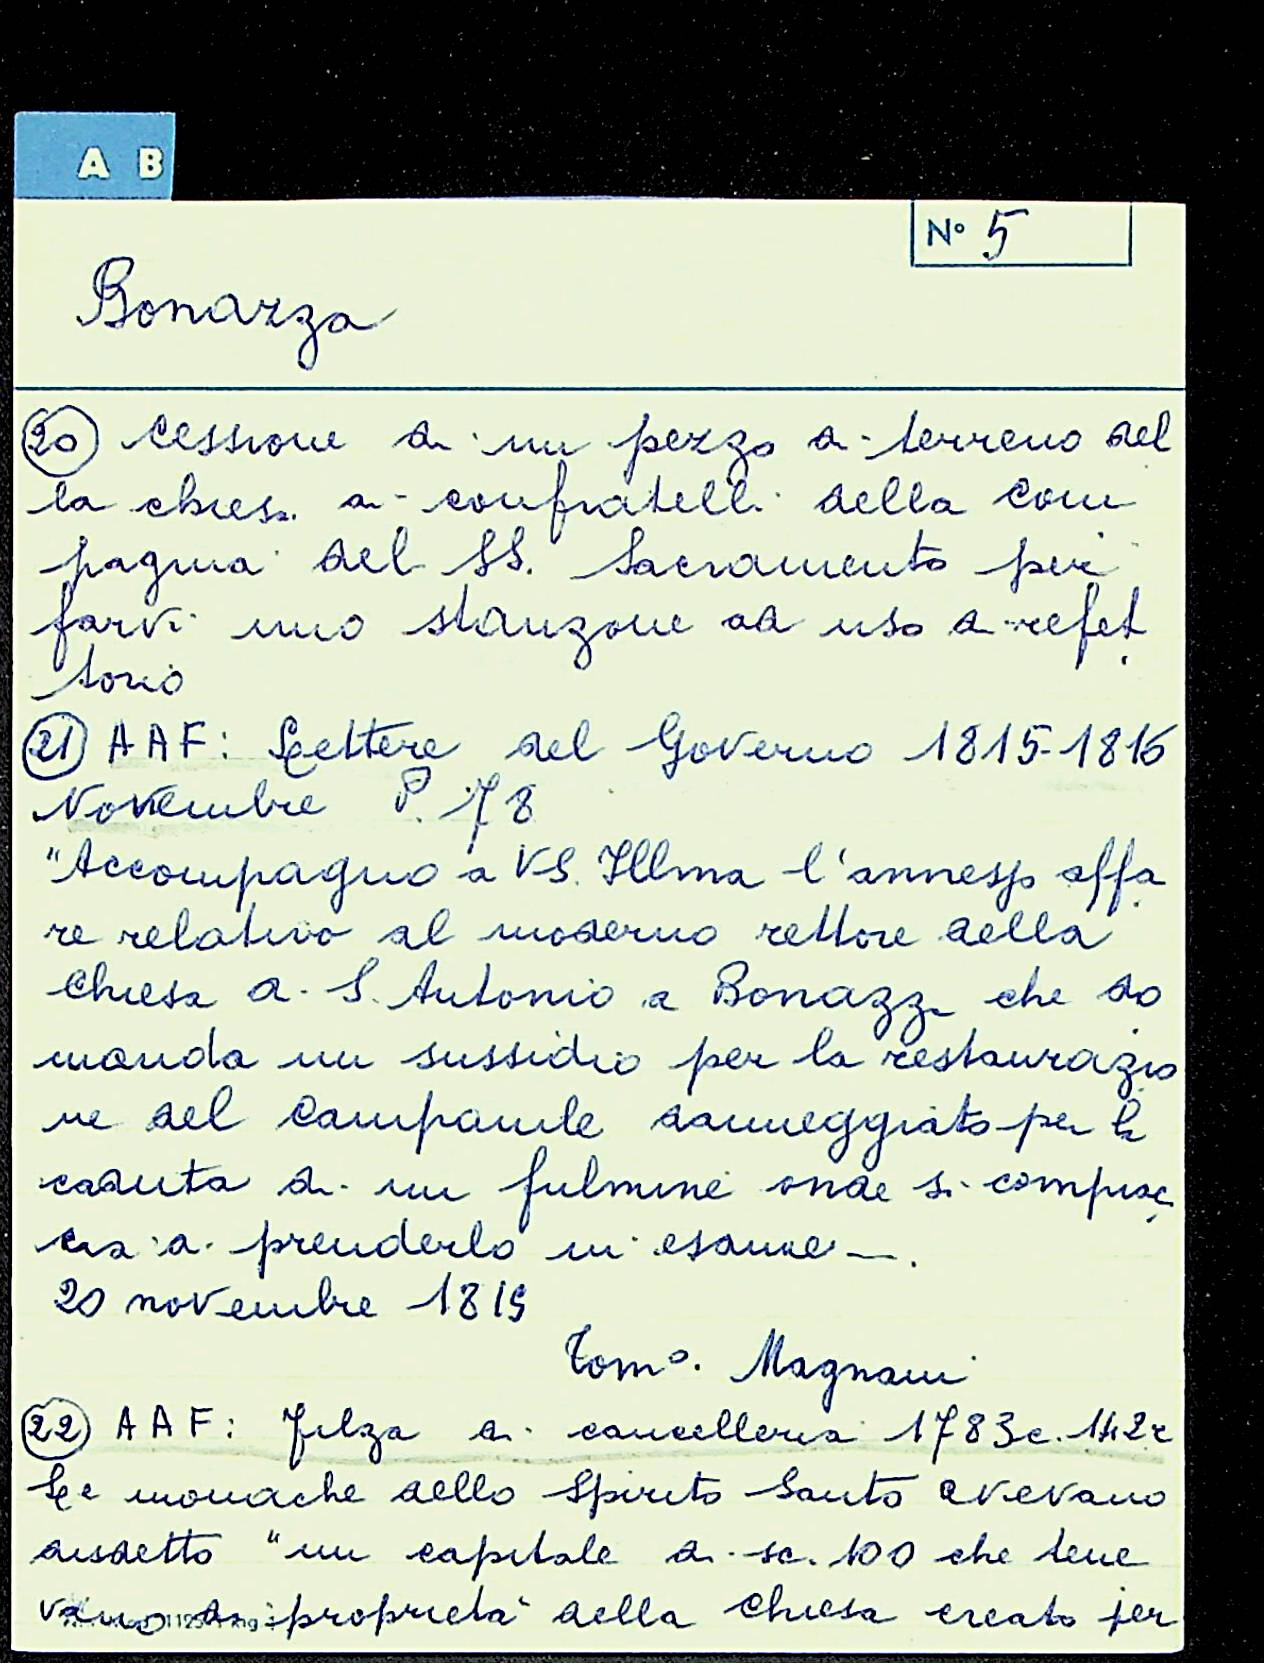 A B
N° 5
Bonazza
20 Cessione di un pezzo di terreno del
la chiesa ai confratelli della com
pagnia del SS. Sacramento per
farvi uno stanzone ad uso di refet
torio
21 AAF: Lettere del Governo 1815-1816
Novembre P. 78
"Accompagno a VS. Illma l'annesso affa
re relativo al moderno rettore della
chiesa di S. Antonio a Bonazza che do
manda un sussidio per la restaurazio
ne del campanile danneggiato per la
caduta di un fulmine onde si compiac
cia di prenderlo in esame —.
20 novembre 1815
Tom°. Magnani
22 AAF: Filza di cancelleria 1783 c. 142r
Le monache dello Spirito Santo avevano
disdetto "un capitale di sc. 100 che tene
vano di proprietà della chiesa creato per